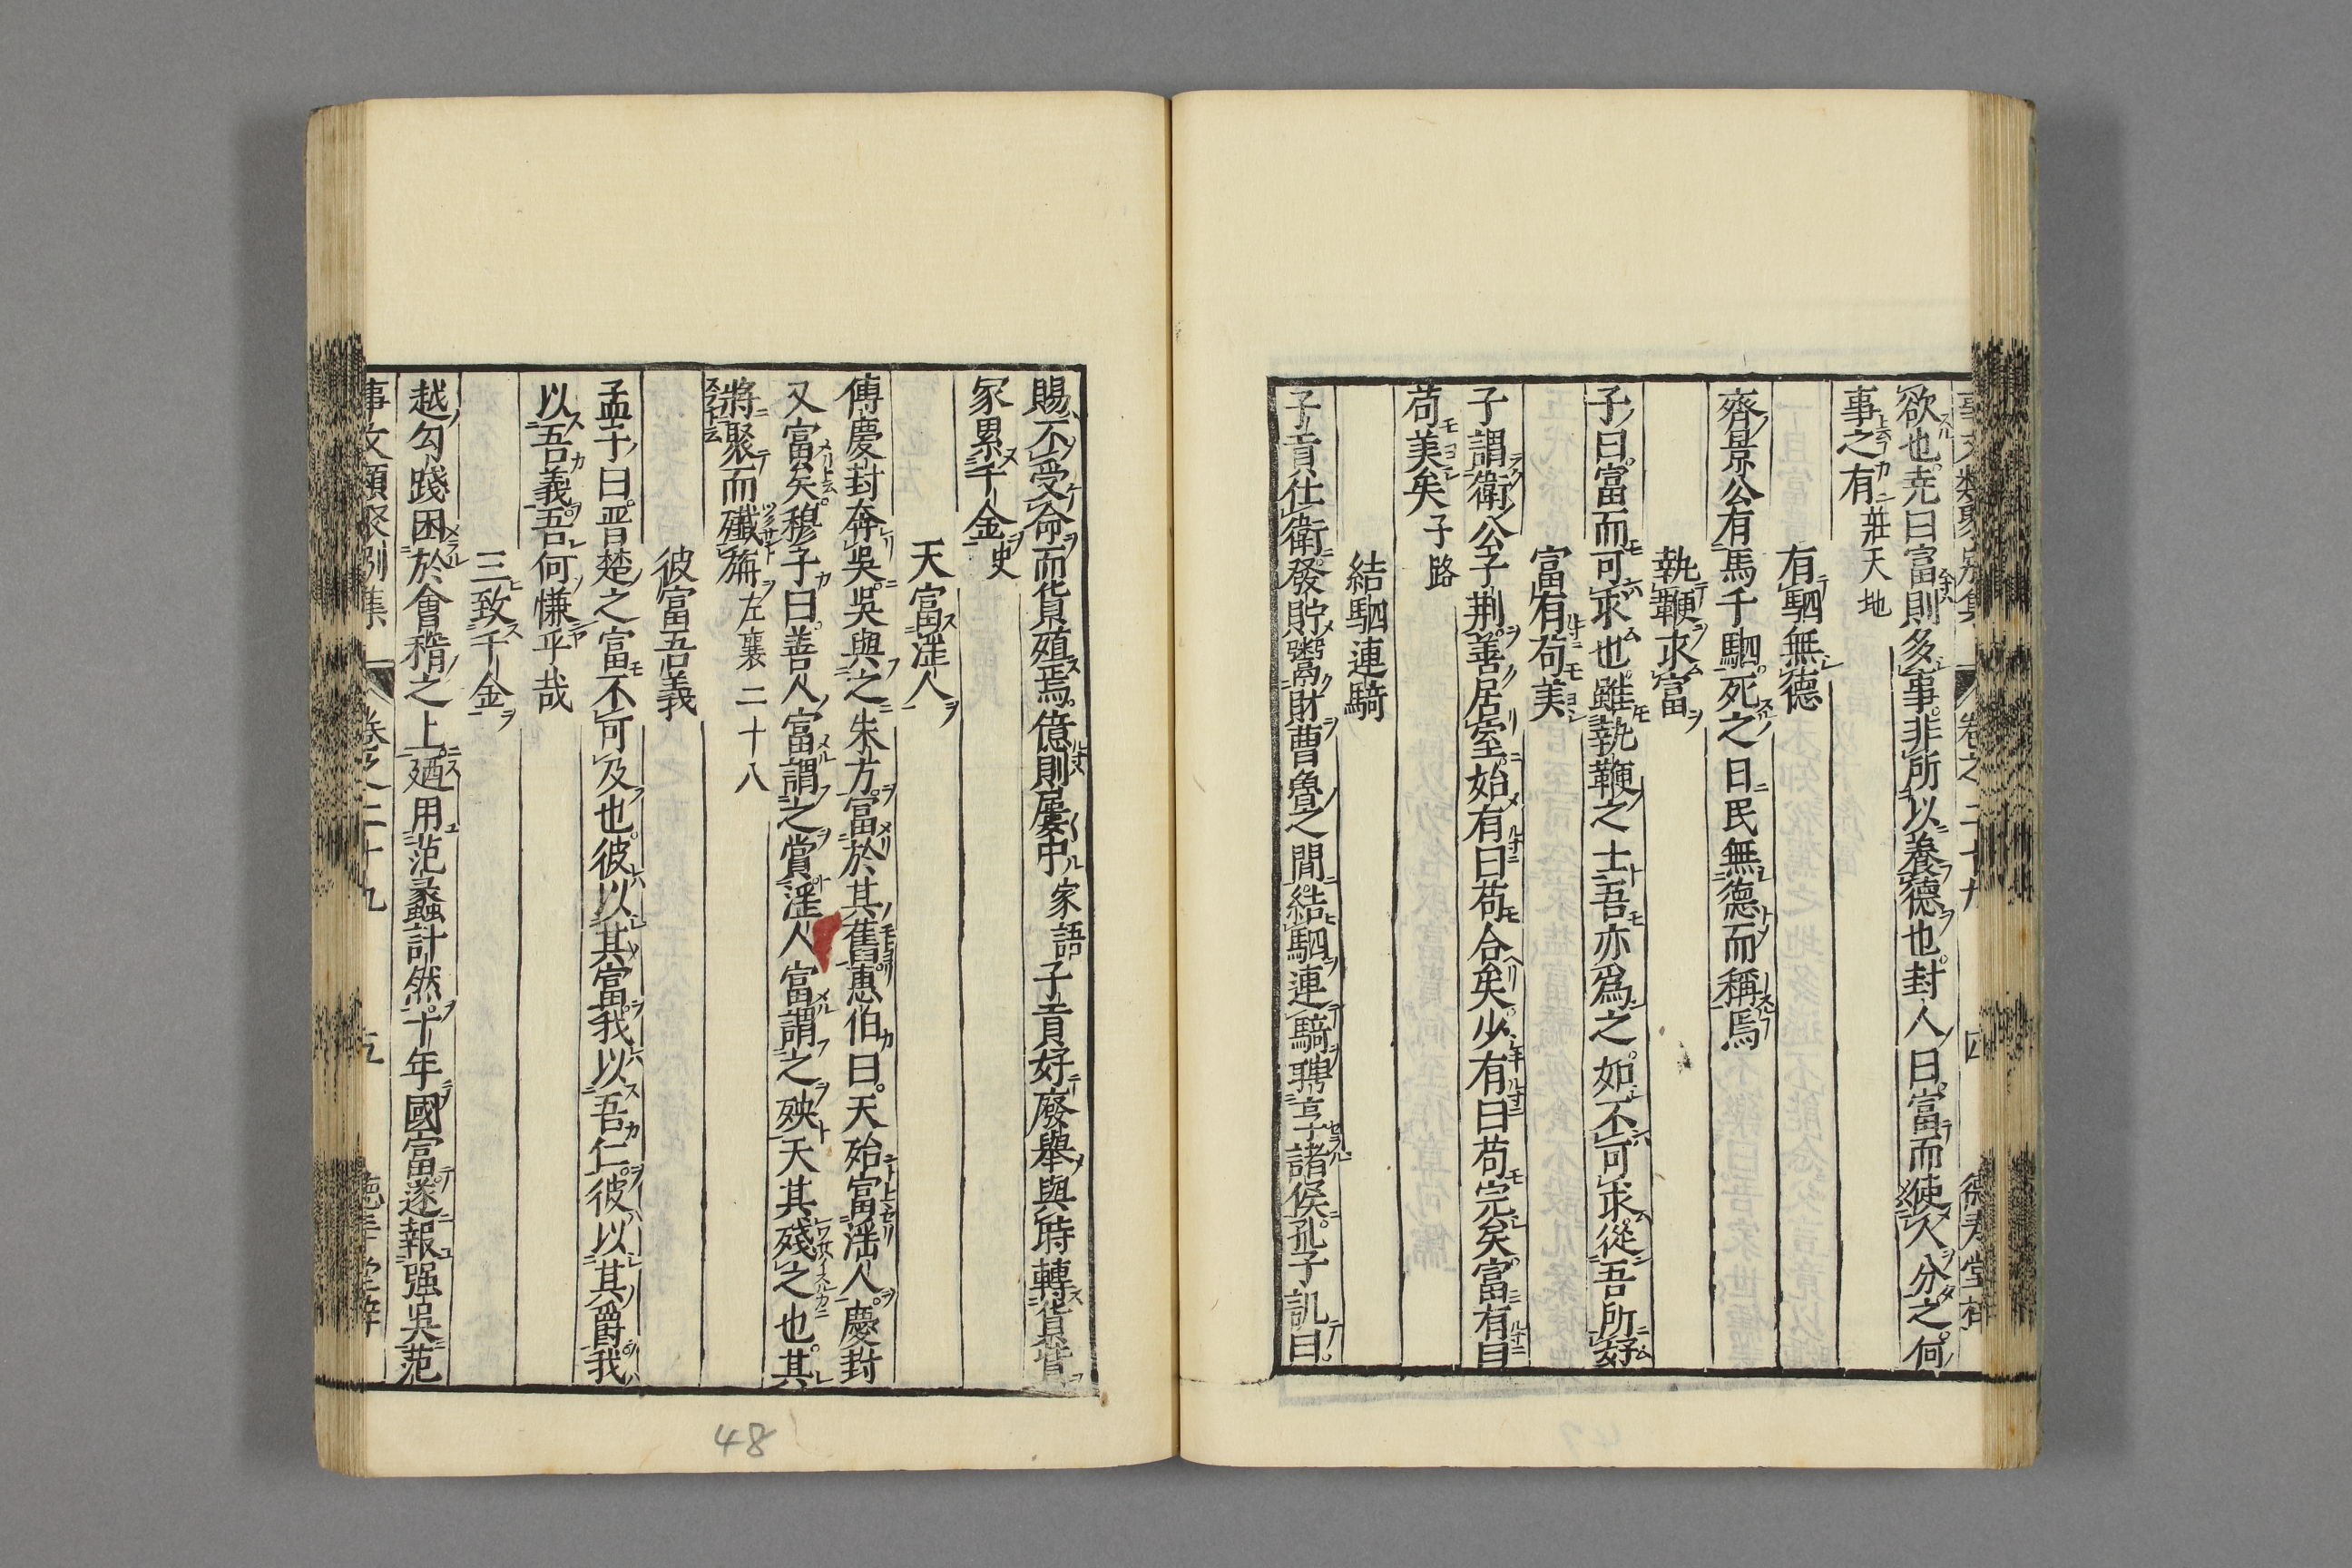 欲也堯曰富則多事非所以養德也封人曰富而使人分之何
事之有莊天地
有駟無德
齊景公有馬千駟死之日民無德而稱焉
執鞭求富
子曰富而可求也雖執鞭之士吾亦爲之如不可求從吾所好
富有苟美
子謂衛公子荆善居室始有曰苟合矣少有曰苟完矣富有曰
苟美矣子路
結駟連騎
子貢仕衛發貯鬻財曹魯之間結駟連騎聘享諸侯孔子訊曰
賜不受命而貨殖焉億則屢中家語子貢好廢舉與時轉貨貲
家累千金史
天富淫人
傳慶封奔吳吳與之朱方富於其舊惠伯曰天殆富淫人慶封
又富矣穆子曰善人富謂之賞淫人富謂之殃天其殘之也其
將聚而殲旃左襄二十八
彼富吾義
孟子曰晋楚之富不可及也彼以其富我以吾仁彼以其爵我
以吾義吾何慊乎哉
三致千金
越勾踐困於會稽之上廼用范蠡計然十年國富遂報强吳范
事文類聚別集 卷之二十九 五
48